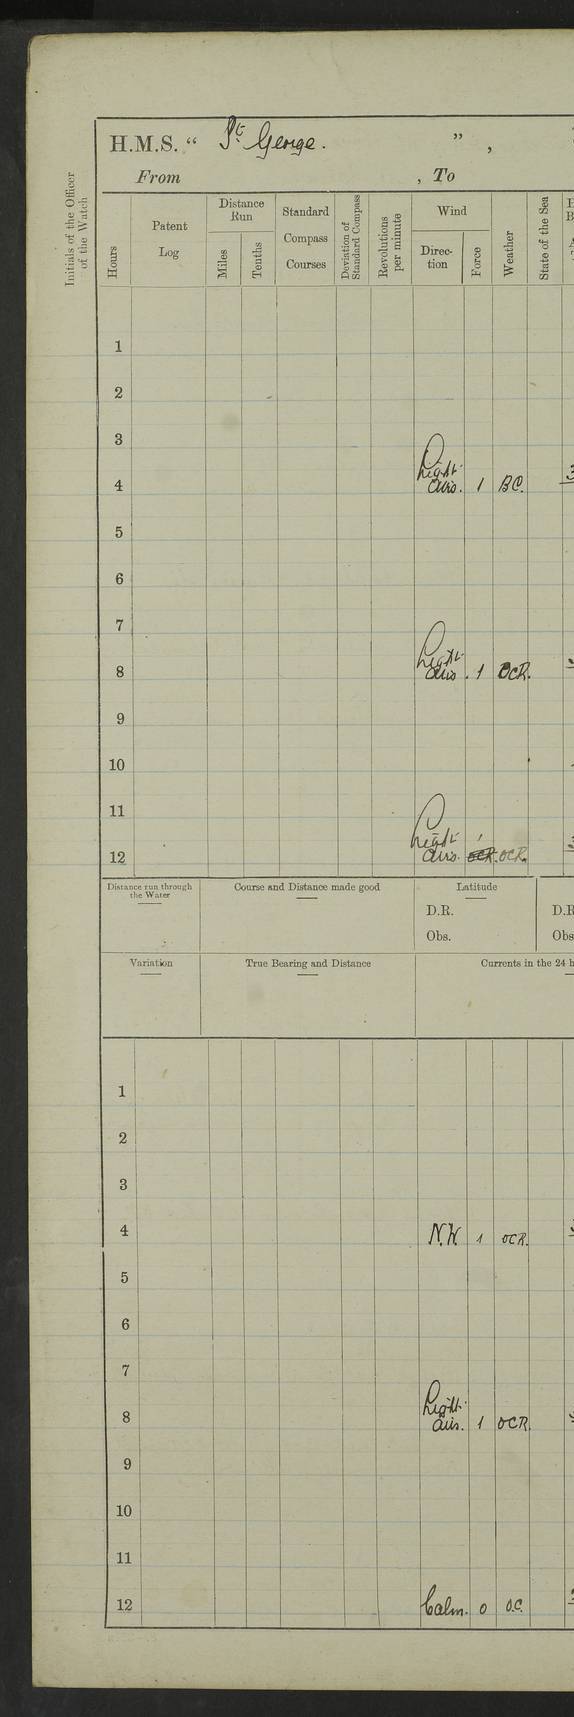 H.M.S. “ St George. ” ,
From , To
Initials of the Officer of the Watch
Hours
Patent Log
Distance Run
Miles
Tenths
Standard Compass Courses
Deviation of Standard Compass
Revolutions per minute
Wind
Direc-tion
Force
Weather
State of the Sea
1
2
3
Light
4 airs. 1 BC.
5
6
7
Light
8 airs. 1 OCR.
9
10
11
Light 1
12 airs. OCR. OCR.
Distance run through the Water
Course and Distance made good
Latitude
D.R.
Obs.
D.R
Obs
Variation
True Bearing and Distance
Currents in the 24 h
1
2
3
4 N.W. 1 OCR.
5
6
7
Light
8 airs. 1 OCR.
9
10
11
12 Calm. 0 O.C.